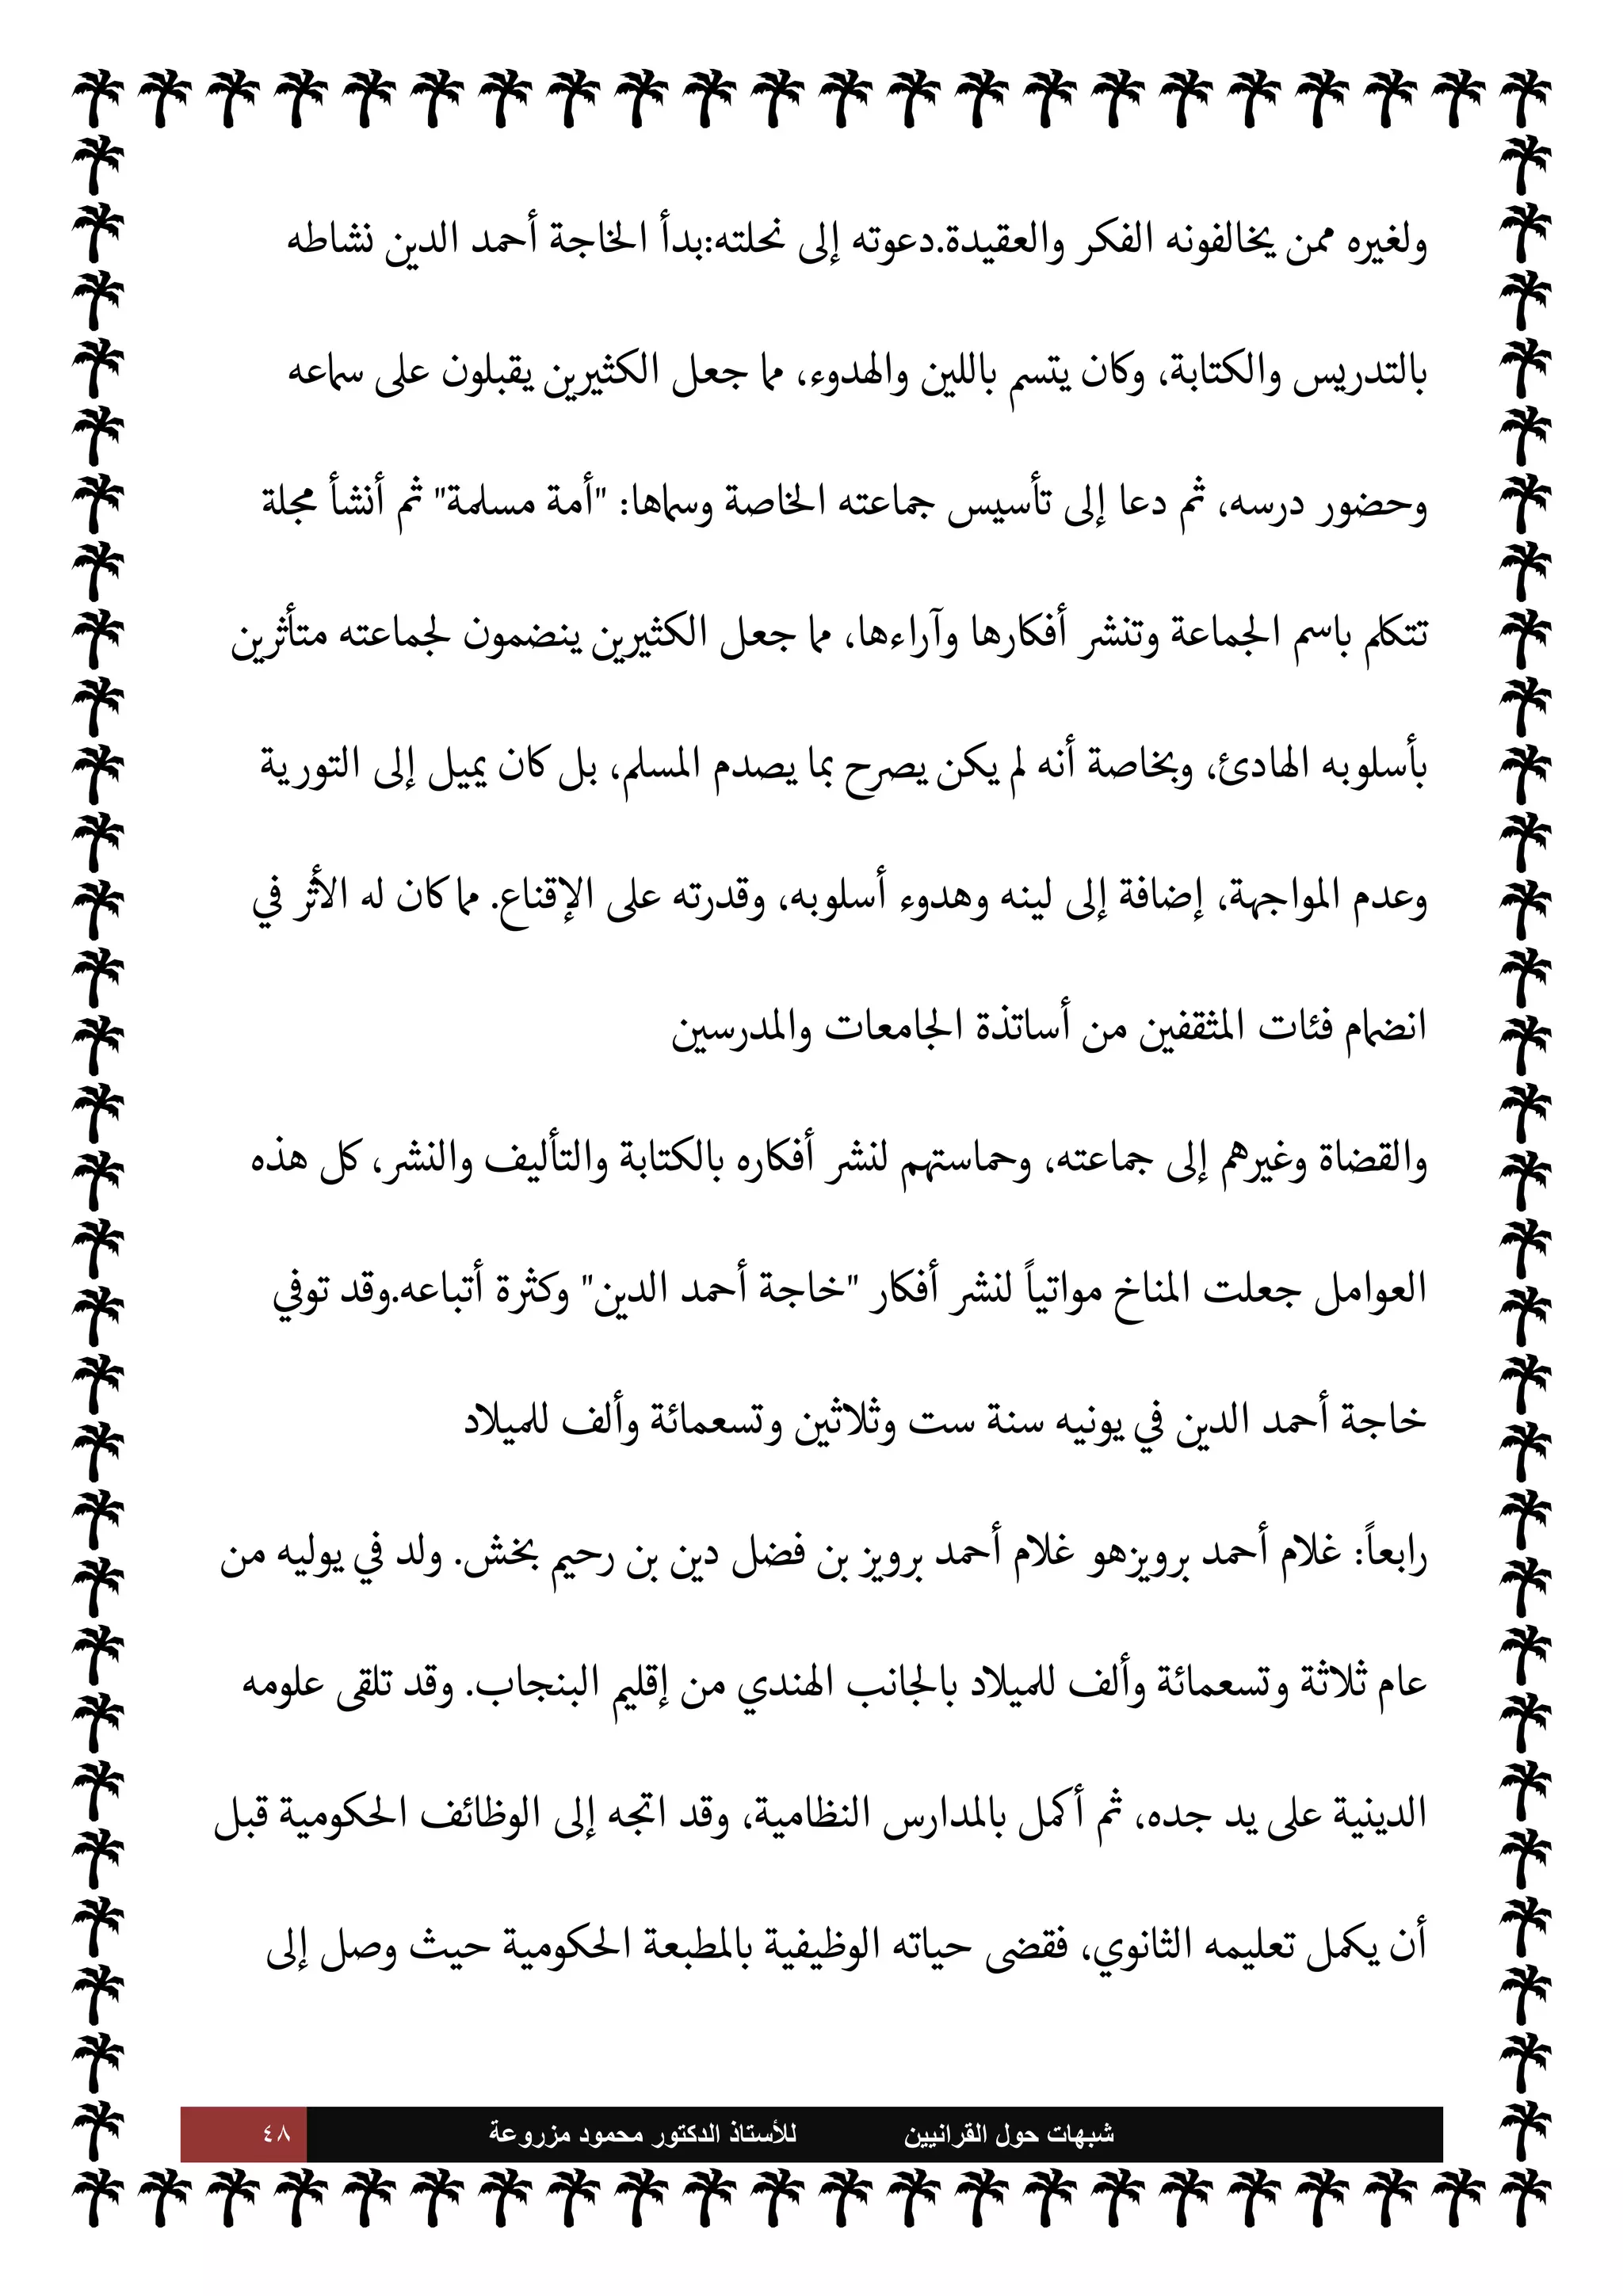 ولغيره ممن يخالفونه الفكر والعقيدة.دعوته إلى نحلته:بدأ الخاجة أحمد الدين نشاطه
بالتدريس والكتابة، وكان يتسم باللين والهدوء، مما جعل الكثيرين يقبلون على سماعه
وحضور درسه، ثم دعا إلى تأسيس جماعته الخاصة وسماها: "أمة مسلمة" ثم أنشأ مجلة
تتكلم باسم الجماعة وتنشر أفكارها وآراءها، مما جعل الكثيرين ينضمون لجماعته متأثرين
بأسلوبه الهادئ، وبخاصة أنه لم يكن يصرح بما يصدم المسلم، بل كان يميل إلى التورية
وعدم المواجهة، إضافة إلى لينه وهدوء أسلوبه، وقدرته على الإقناع. مما كان له الأثر في
انضمام فئات المثقفين من أساتذة الجامعات والمدرسين
والقضاة وغيرهم إلى جماعته، وحماستهم لنشر أفكاره بالكتابة والتأليف والنشر، كل هذه
العوامل جعلت المناخ مواتياً لنشر أفكار "خاجة أحمد الدين" وكثرة أتباعه.وقد توفي
خاجة أحمد الدين في يونيه سنة ست وثلاثين وتسعمائة وألف للميلاد
رابعاً: غلام أحمد برويزهو غلام أحمد برويز بن فضل دين بن رحيم بخش. ولد في يوليه من
عام ثلاثة وتسعمائة وألف للميلاد بالجانب الهندي من إقليم البنجاب. وقد تلقى علومه
الدينية على يد جده، ثم أكمل بالمدارس النظامية، وقد اتجه إلى الوظائف الحكومية قبل
أن يكمل تعليمه الثانوي، فقضى حياته الوظيفية بالمطبعة الحكومية حيث وصل إلى
شبهات حول القرانيين للأستاذ الدكتور محمود مزروعة ٤٨